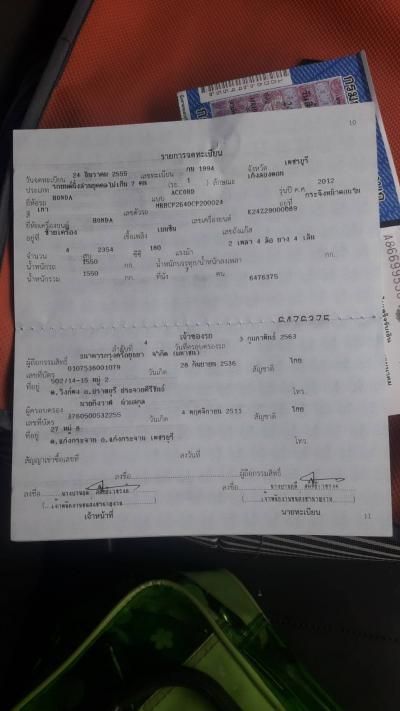 10
รายการจดทะเบียน
วันจดทะเบียน 24 ธันวาคม 2555 เลขทะเบียน กย 1994 จังหวัด เพชรบุรี
ประเภท รถยนต์นั่งส่วนบุคคลไม่เกิน 7 คน (รย. 1 ) ลักษณะ เก๋งสองตอน
ยี่ห้อรถ HONDA แบบ ACCORD รุ่นปี ค.ศ. 2012
สี เทา เลขตัวรถ อยู่ที่
ยี่ห้อเครื่องยนต์ HONDA เลขเครื่องยนต์
อยู่ที่ ซ้ายเครื่อง เชื้อเพลิง เบนซิน เลขถังแก๊ส
จำนวน 4 สูบ 2354 ซีซี 180 แรงม้า 2 เพลา 4 ล้อ ยาง 4 เส้น
น้ำหนักรถ 1550 กก. น้ำหนักบรรทุก/น้ำหนักลงเพลา กก.
น้ำหนักรวม 1550 กก. ที่นั่ง 7 คน 6476375
6476375
เจ้าของรถ
ลำดับที่ 4 วันที่ครอบครองรถ 3 กุมภาพันธ์ 2563
ผู้ถือกรรมสิทธิ์ ธนาคารกรุงศรีอยุธยา จำกัด (มหาชน)
เลขที่บัตร 0107536001079 วันเกิด 28 กันยายน 2536 สัญชาติ ไทย
ที่อยู่ 502/14-15 หมู่ 2
ต.วังก์พง อ.ปราณบุรี ประจวบคีรีขันธ์ โทร.
ผู้ครอบครอง
เลขที่บัตร 3760500532255 วันเกิด 4 พฤศจิกายน 2511 สัญชาติ ไทย
ที่อยู่ 27 หมู่ 8
ต.แก่งกระจาน อ.แก่งกระจาน เพชรบุรี โทร.
สัญญาเช่าซื้อเลขที่ ลงวันที่
ลงชื่อ ผู้ถือกรรมสิทธิ์
ลงชื่อ ลงชื่อ
เจ้าหน้าที่ นายทะเบียน
11